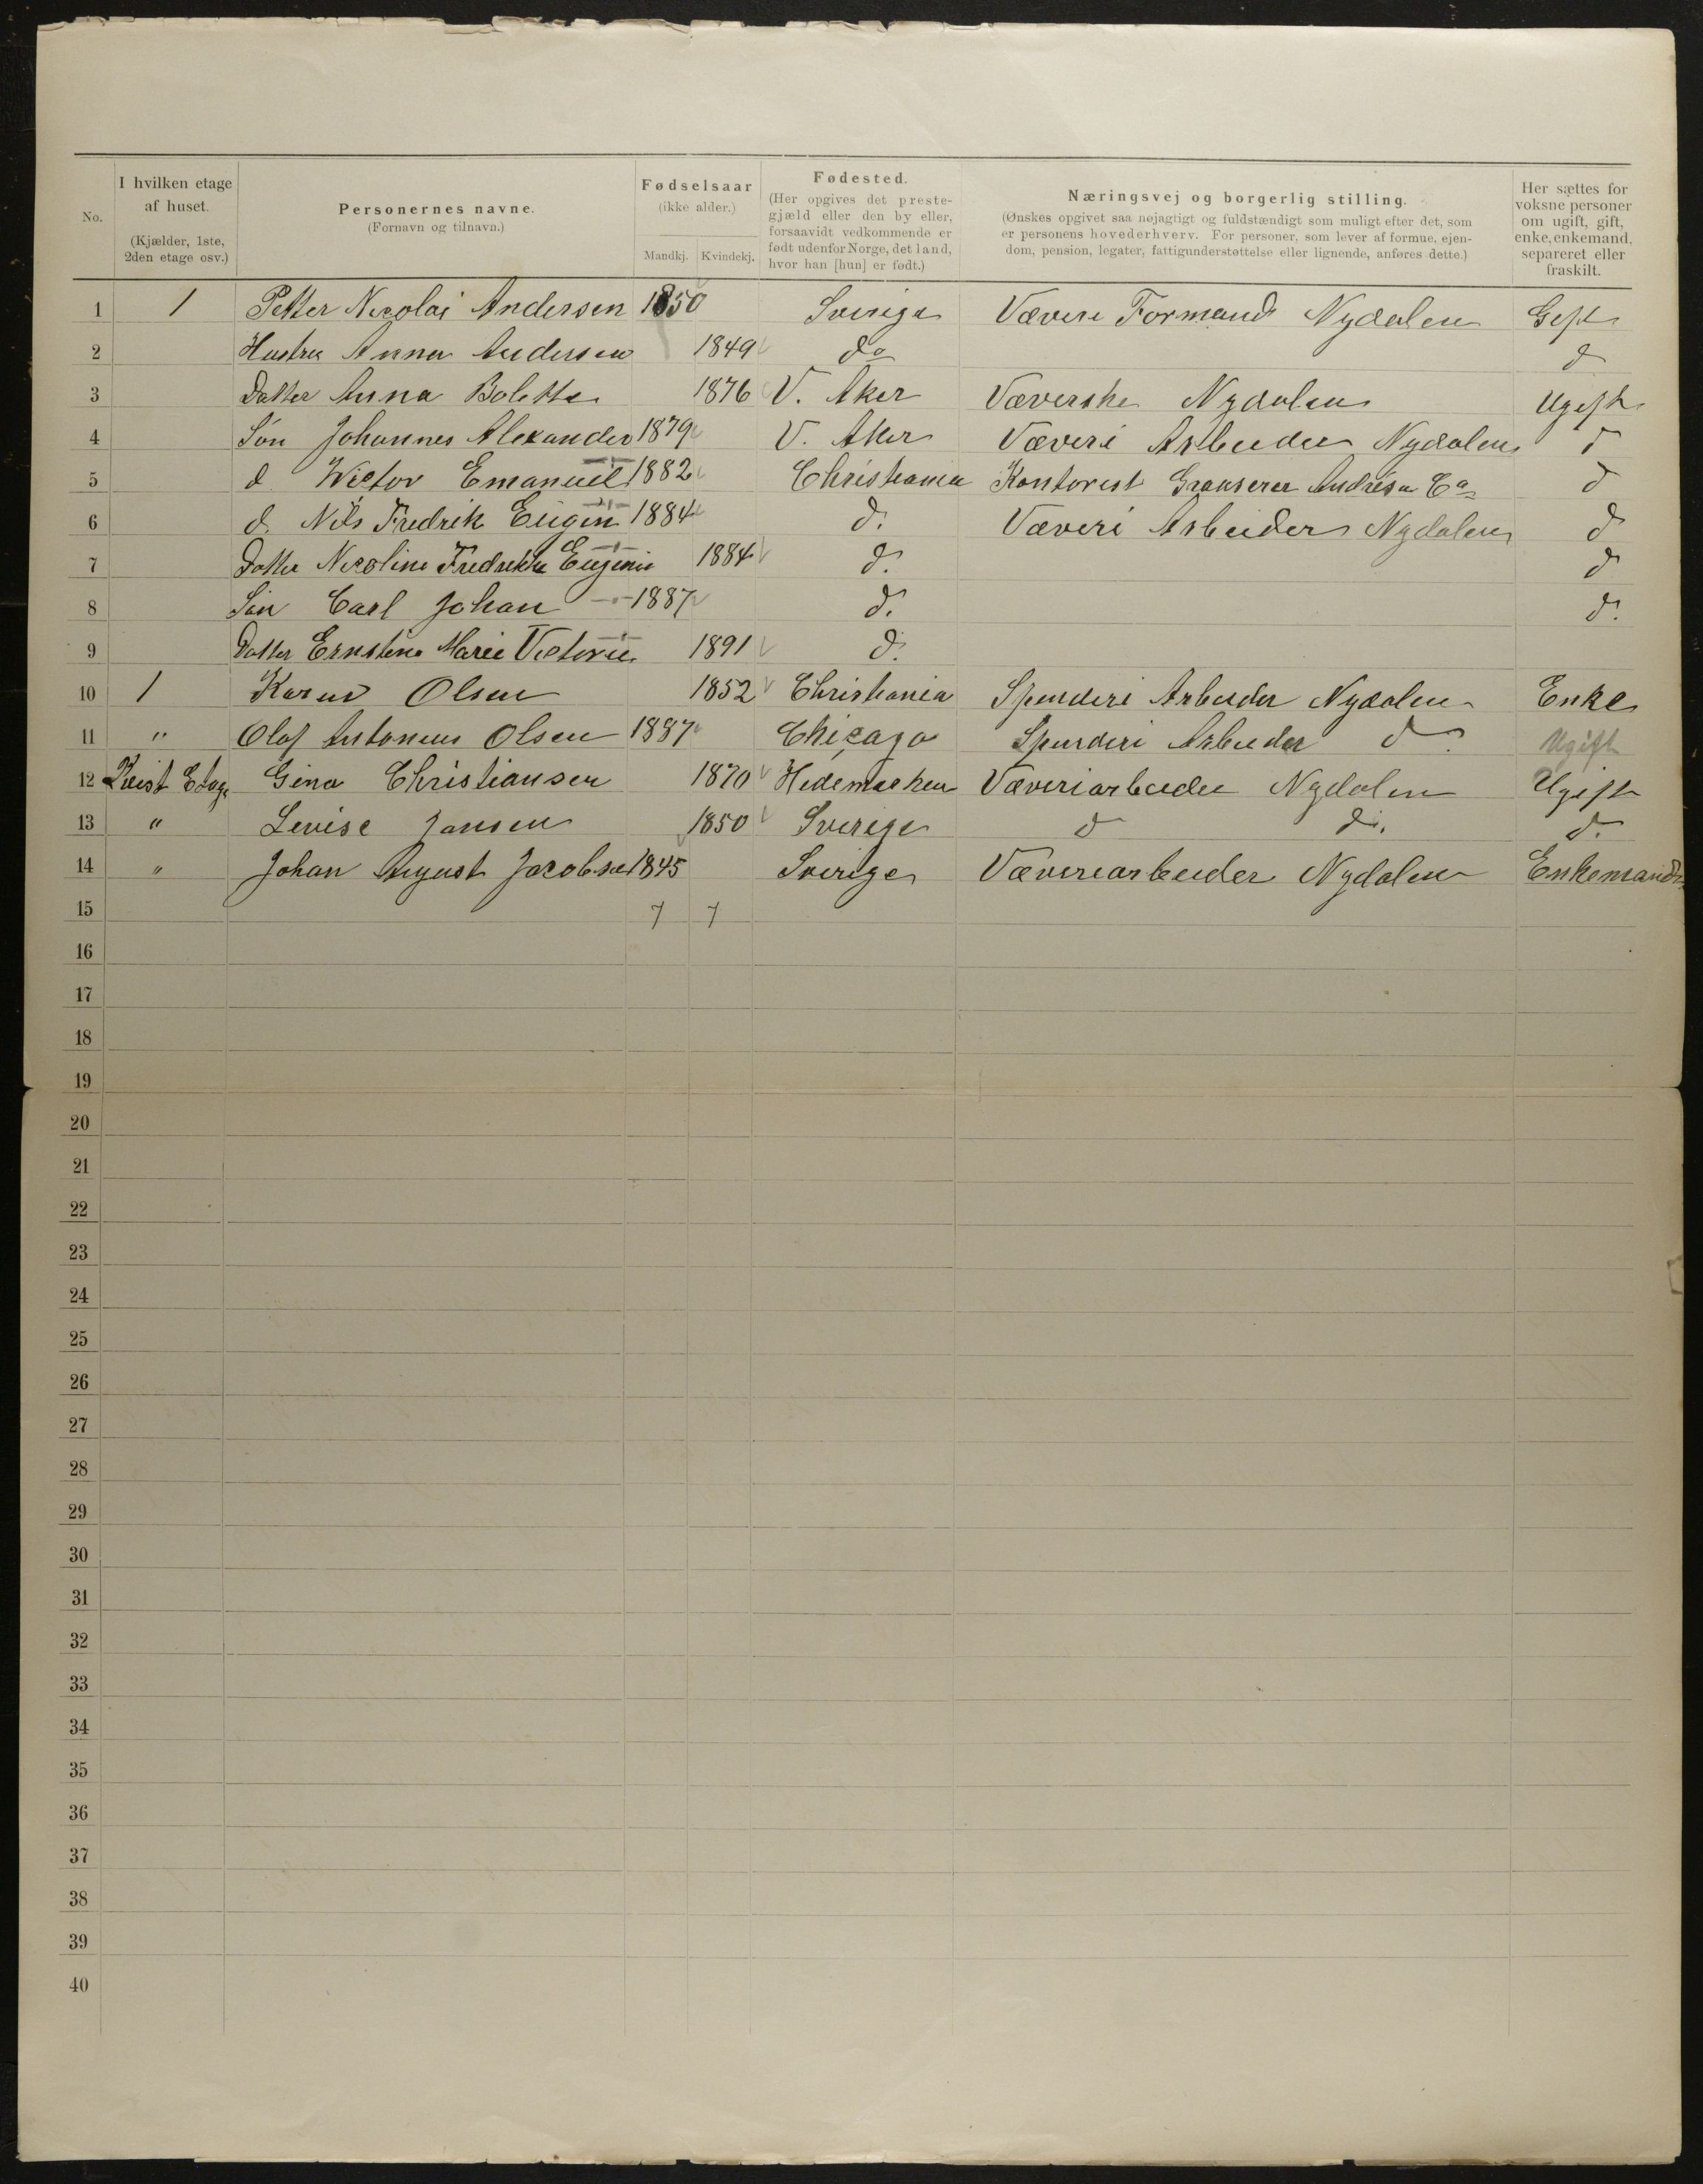 No.
I hvilken etage af huset.
(Kjælder, 1ste, 2den etage osv.)
Personernes navne.
(Fornavn og tilnavn.)
Fødselsaar
(ikke alder.)
Mandkj. Kvindekj.
Fødested.
(Her opgives det preste-
gjæld eller den by eller,
forsaavidt vedkommende er
født udenfor Norge, det land,
hvor han [hun] er født.)
Næringsvej og borgerlig stilling.
(Ønskes opgivet saa nøjagtigt og fuldstændigt som muligt efter det, som
er personens hovederhverv. For personer, som lever af formue, ejen-
dom, pension, legater, fattigunderstøttelse eller lignende, anføres dette.)
Her sættes for
voksne personer
om ugift, gift,
enke, enkemand,
separeret eller
fraskilt.
1 1 Petter Nicolai Andersen 1850 Sverige Væveri Formand Nydalen Gift
2 Hustru Anna Andersen 1849 do d
3 Datter Anna Bolette 1876 V. Aker Væverske Nydalen Ugift
4 Søn Johannes Alexander 1879 V. Aker Væveri Arbeider Nydalen d
5 d Wictor Emanuel 1882 Christiania Kontorist Andresen Co d
6 d. Nils Fredrik Eugen 1884 d. Væveri Arbeider Nydalen d
7 Datter Nicoline Fredrikke Eugenie 1884 d. d
8 Søn Carl Johan 1887 d. d.
9 Datter Ernstine Marie Victoria 1891 d.
10 1 Karen Olsen 1852 Christiania Spinderi Arbeider Nydalen Enke
11 " Olaf Antonius Olsen 1887 Chicago Spinderi Arbeider d. Ugift
12 Kvist Etage Gina Christiansen 1870 Hedemarken Væveriarbeider Nydalen Ugift
13 " Levise Jansen 1850 Sverige d d. d.
14 " Johan August Jacobsen 1845 Sverige Væveriarbeider Nydalen Enkemand
15 7 7
16
17
18
19
20
21
22
23
24
25
26
27
28
29
30
31
32
33
34
35
36
37
38
39
40